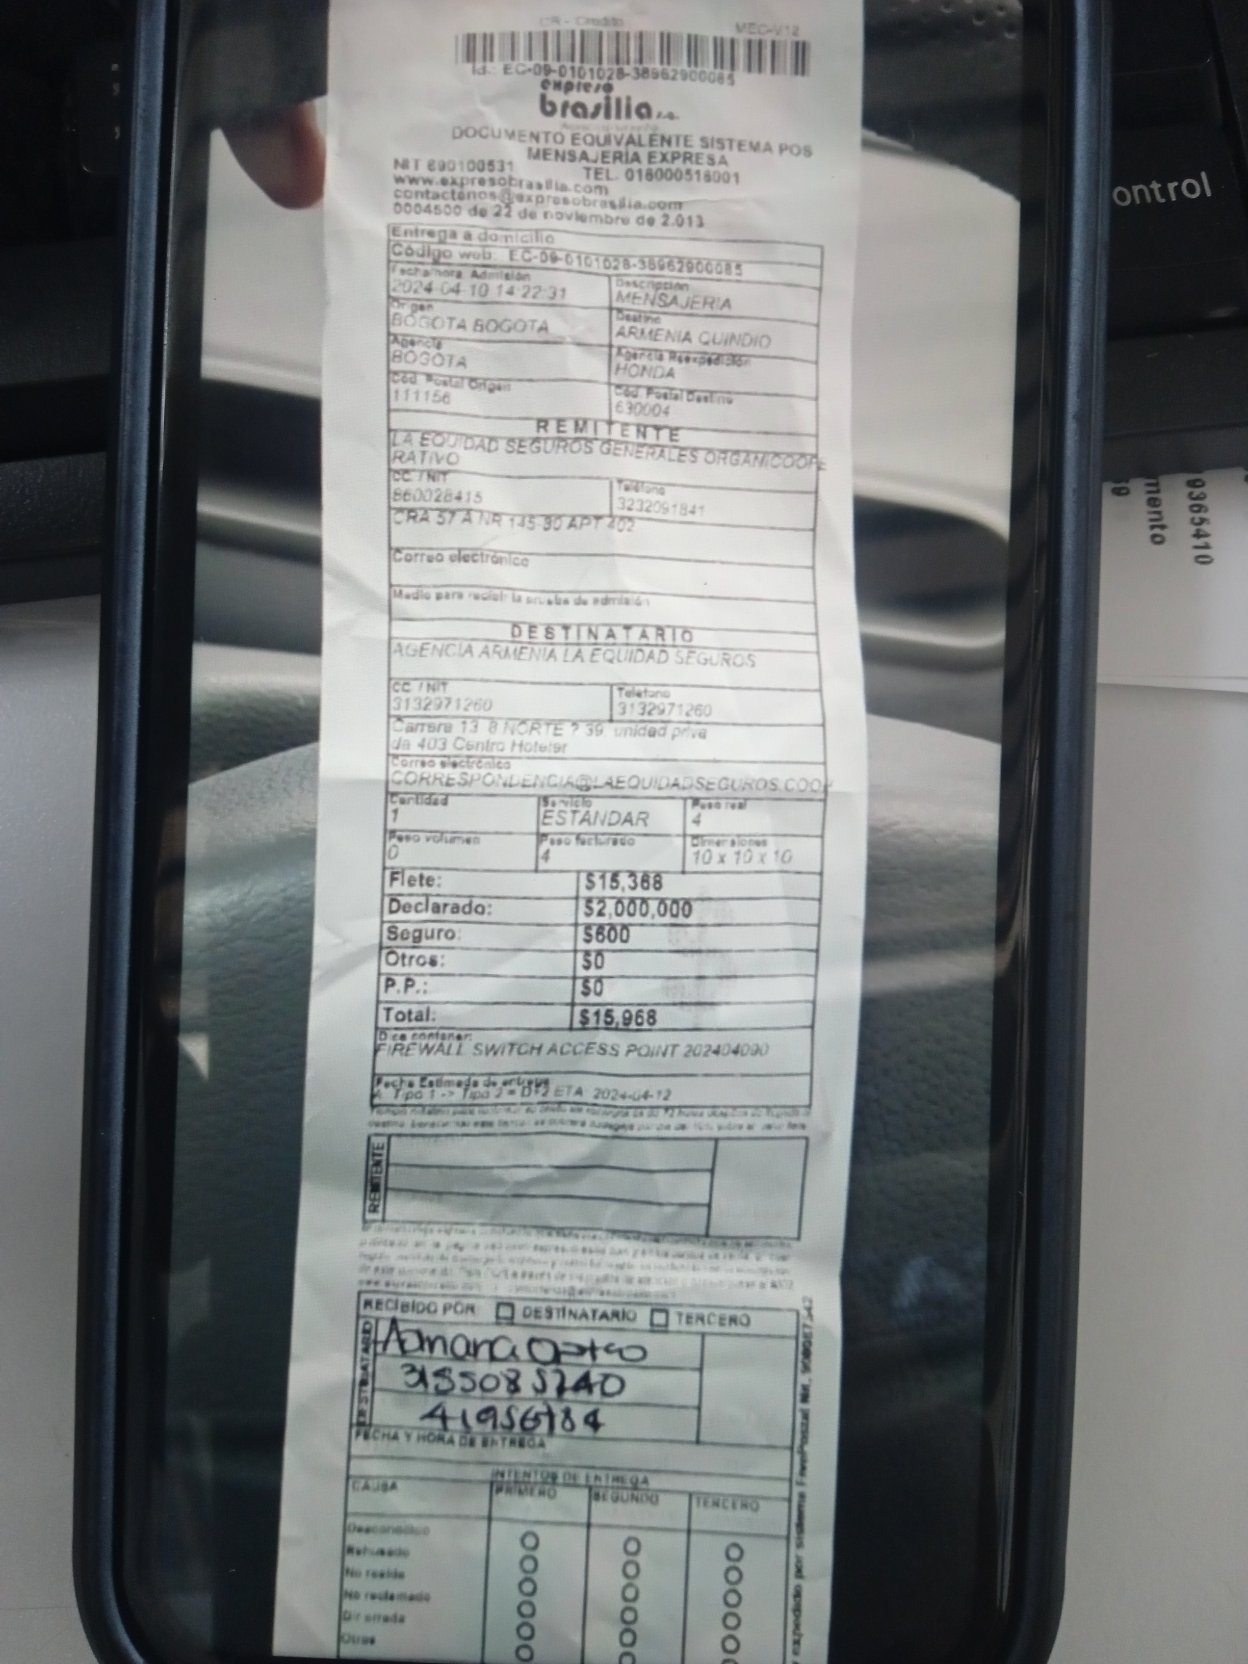 CR - Credito MEC-V12
Id.: EC-09-0101028-38962900085
expreso
brasilia s.a.
DOCUMENTO EQUIVALENTE SISTEMA POS
MENSAJERÍA EXPRESA
NIT 890100531 TEL. 018000518001
www.expresobrasilia.com
contactenos@expresobrasilia.com
0004500 de 22 de noviembre de 2.013
Entrega a domicilio
Código web: EC-09-0101028-38962900085
Fecha/hora Admisión Descripción
2024-04-10 14:22:31 MENSAJERIA
Origen Destino
BOGOTA BOGOTA ARMENIA QUINDIO
Agencia Agencia Reexpedición
BOGOTA HONDA
Cód. Postal Origen Cód. Postal Destino
111156 630004
REMITENTE
LA EQUIDAD SEGUROS GENERALES ORGANICOOPE
RATIVO
CC. / NIT Teléfono
860028415 3232091841
CRA 57 A NR 145-90 APT 402
Correo electrónico
Medio para recibir la prueba de admisión
DESTINATARIO
AGENCIA ARMENIA LA EQUIDAD SEGUROS
CC. / NIT Teléfono
3132971260 3132971260
Carrera 13 B NORTE ? 39, unidad priva
da 403 Centro Hoteler
Correo electrónico
CORRESPONDENCIA@LAEQUIDADSEGUROS.COOP
Cantidad Servicio Peso real
1 ESTANDAR 4
Peso volumen Peso facturado Dimensiones
0 4 10 x 10 x 10
Flete: $15,368
Declarado: $2,000,000
Seguro: $600
Otros: $0
P.P.: $0
Total: $15,968
Dice contener:
FIREWALL SWITCH ACCESS POINT 202404090
Fecha Estimada de entrega
A. Tipo 1 -> Tipo 2 = D+2 ETA: 2024-04-12
REMITENTE
RECIBIDO POR: DESTINATARIO TERCERO
DESTINATARIO
3155085740
FECHA Y HORA DE ENTREGA
INTENTOS DE ENTREGA
CAUSA PRIMERO SEGUNDO TERCERO
Desconocido
Rehusado
No reside
No reclamado
Dir errada
Otros
expedido por sistema FreePostal Nit.
ontrol
9365410
mento